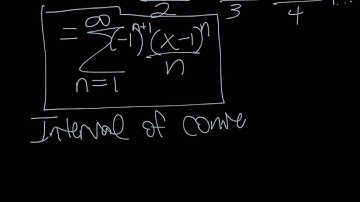 2 3 4 ...
= ∞ Σ n=1 (-1)^{n+1} (x-1)^n / n
Interval of conve